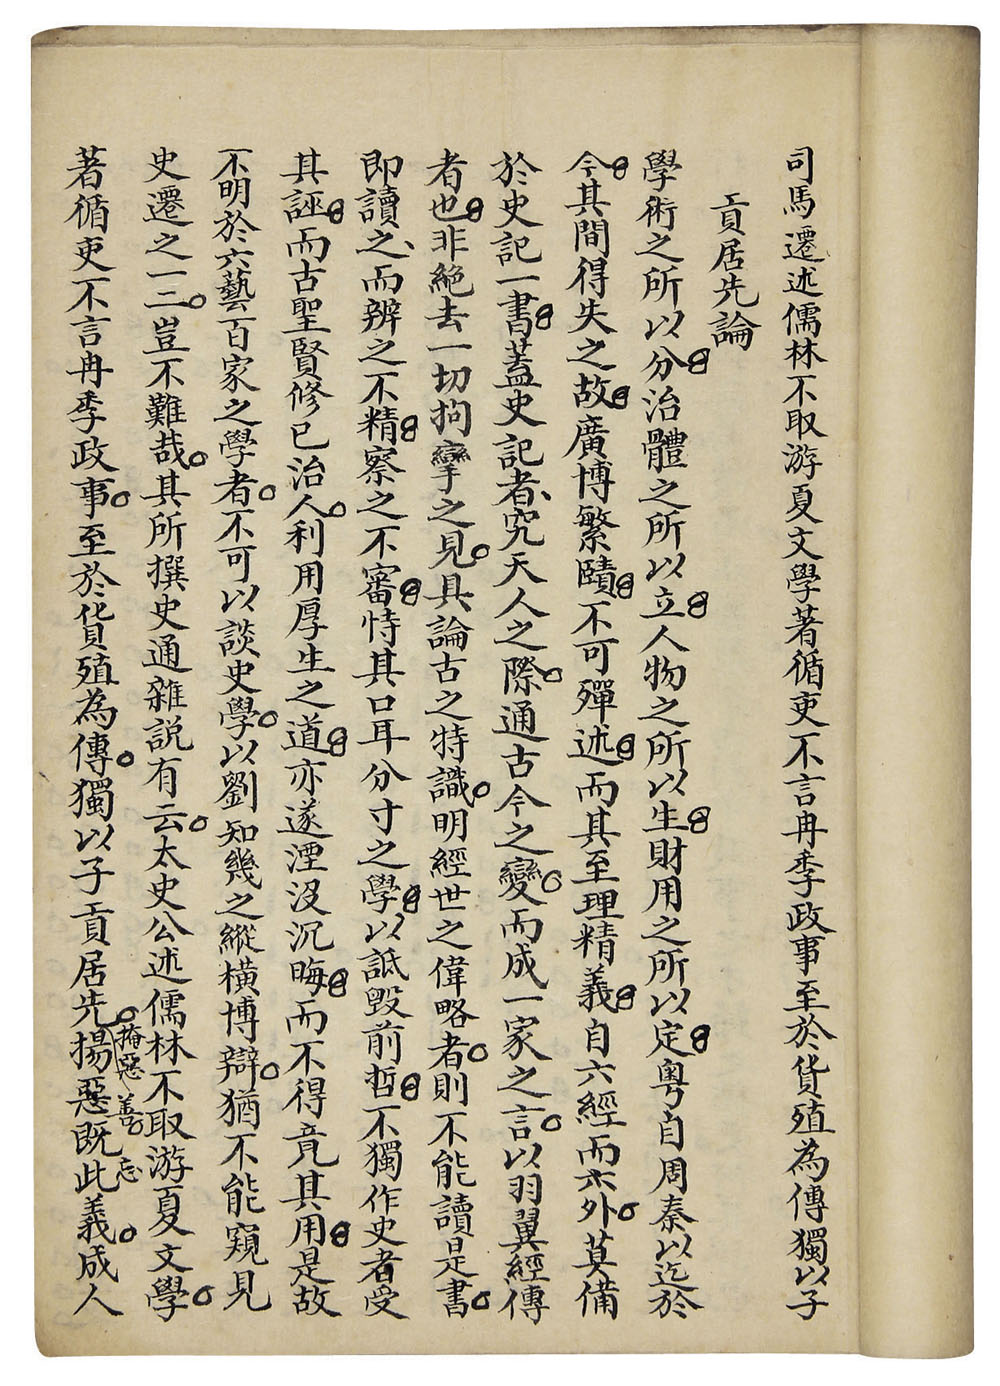 司馬遷述儒林不取游夏文學著循吏不言冉季政事至於貨殖為傳獨以子
貢居先論
學術之所以分治體之所以立人物之所以生財用之所以定粵自周秦以迄於
今其間得失之故廣博繁賾不可殫述而其至理精義自六經而外莫備
於史記一書蓋史記者究天人之際通古今之變而成一家之言以羽翼經傳
者也非絕去一切拘攣之見具論古之特識明經世之偉略者則不能讀是書
即讀之而辨之不精察之不審恃其口耳分寸之學以詆毀前哲不獨作史者受
其誣而古聖賢修己治人利用厚生之道亦遂湮沒沉晦而不得竟其用是故
不明於六藝百家之學者不可以談史學以劉知幾之縱橫博辯猶不能窺見
史遷之一二豈不難哉其所撰史通雜說有云太史公述儒林不取游夏文學
著循吏不言冉季政事至於貨殖為傳獨以子貢居先揚惡既此義成人
掩惡
善
忘